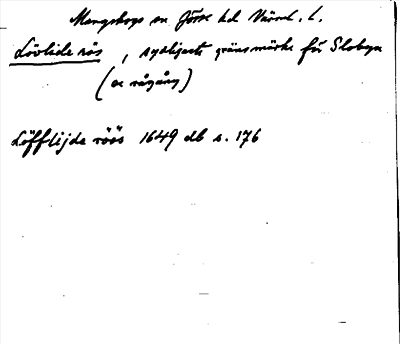 Mangskogs sn Jösse hd Värml. l.
Lövlide rös, sydligaste gränsmärke för Slobyn
(oc rågång)
Löfflijda röös 1649 db s. 176